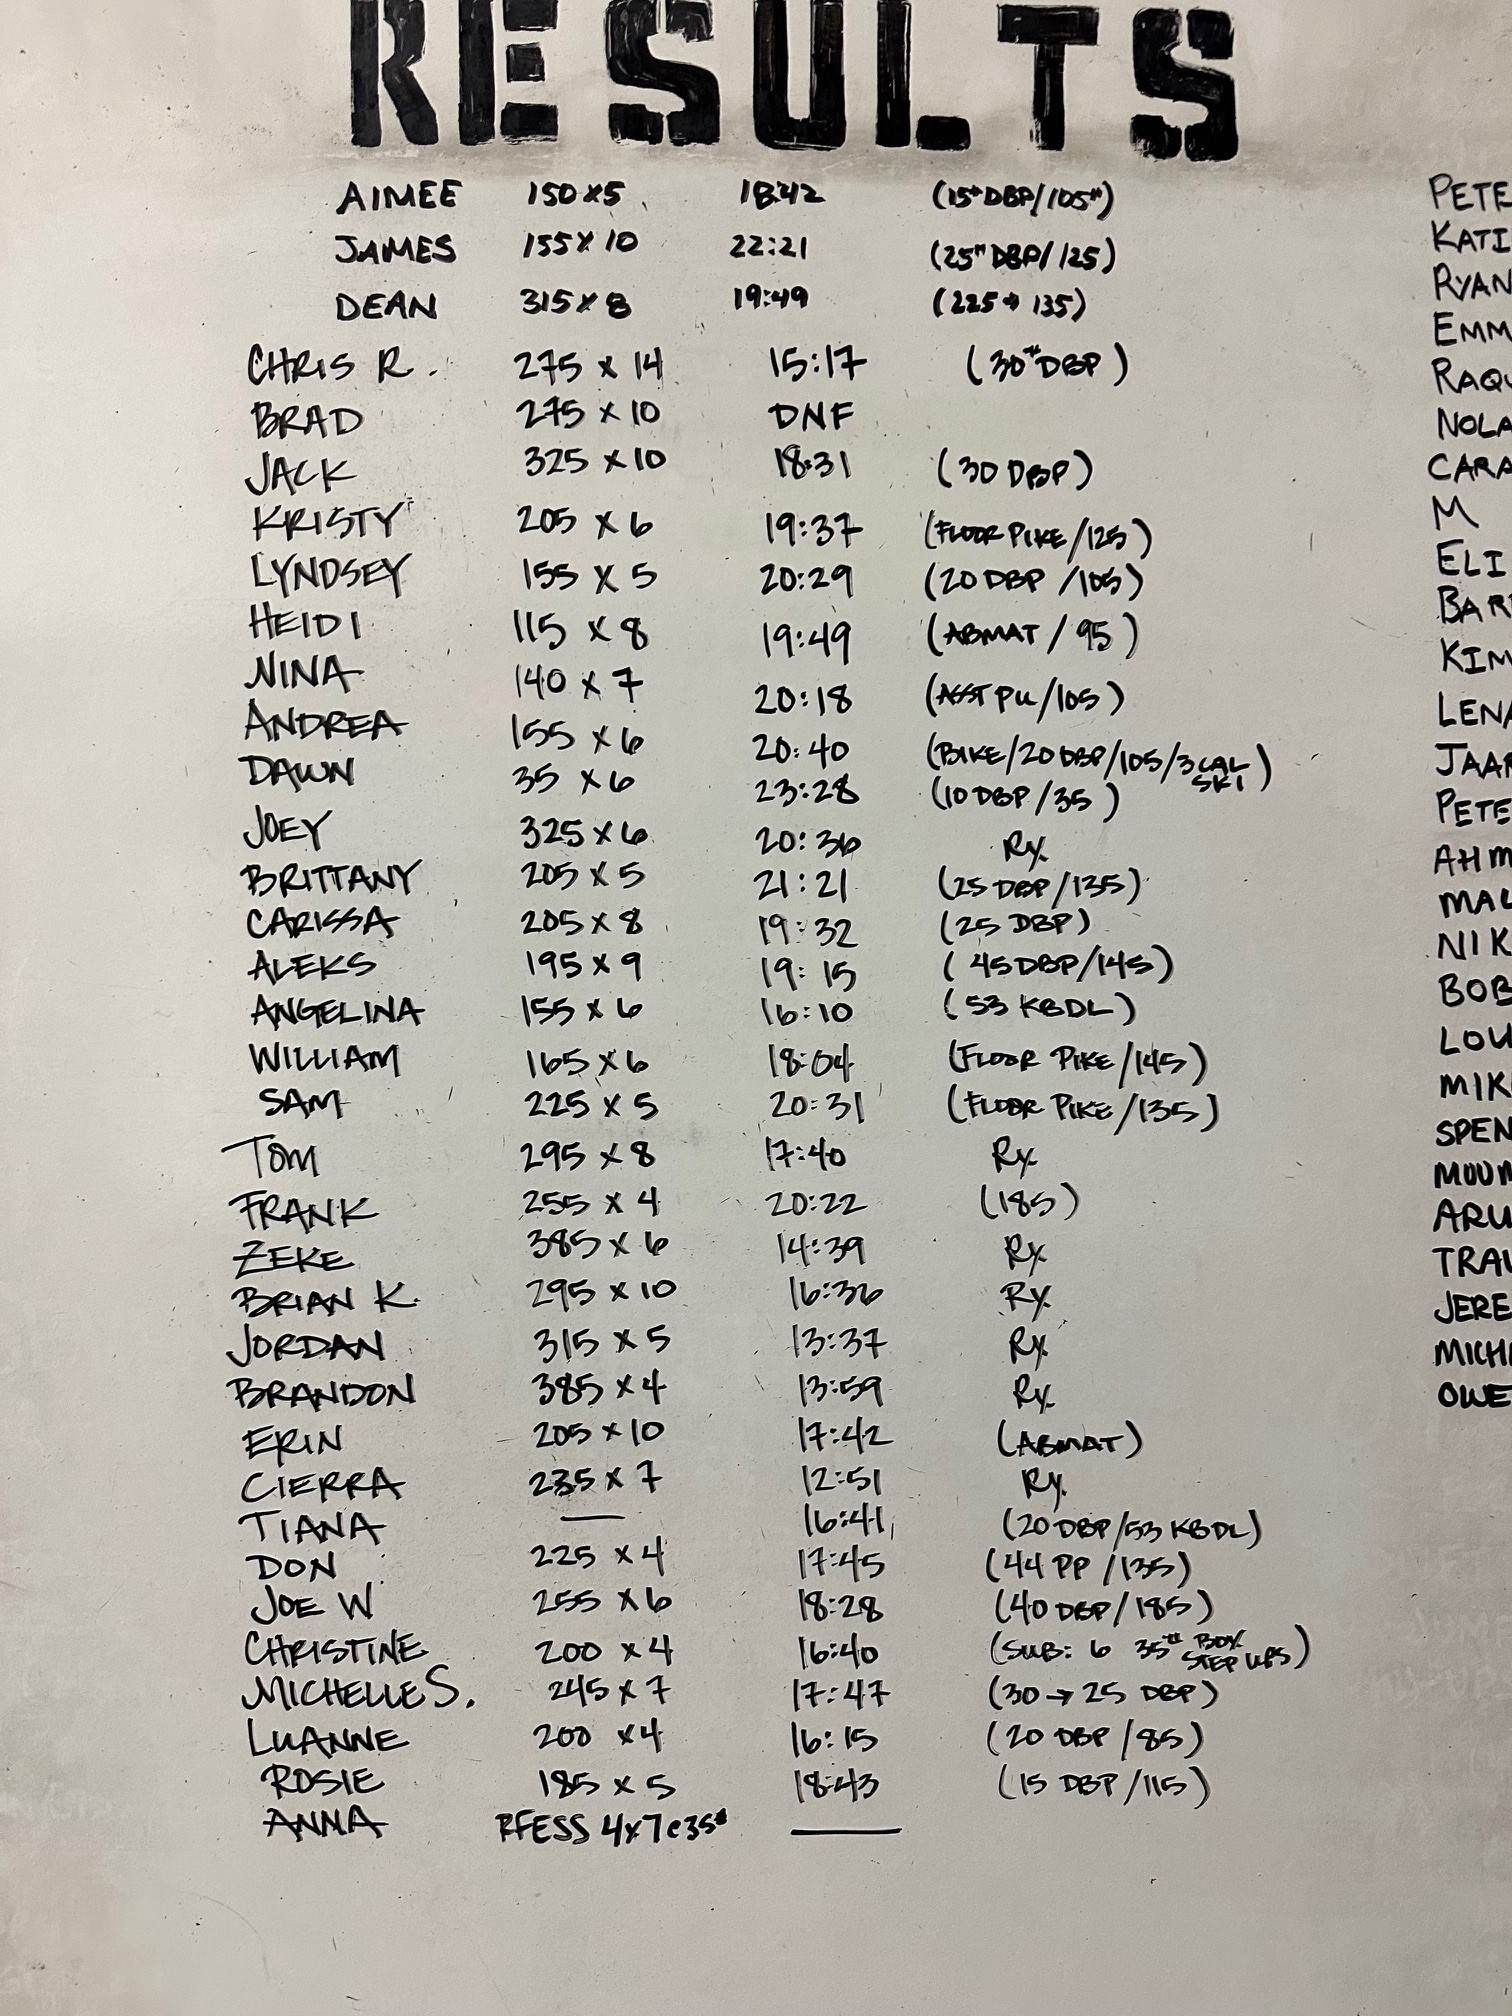 RESULTS
AIMEE 150x5 18:42 (15# DBP/105#)
JAMES 155x10 22:21 (25# DBP/125)
DEAN 315x8 19:49 (225→135)
CHRIS R. 275 x 14 15:17 (30# DBP)
BRAD 275 x 10 DNF
JACK 325 x 10 18:31 (30 DBP)
KRISTY 205 x 6 19:37 (FLOOR PIKE/125)
LYNDSEY 155 x 5 20:29 (20 DBP /105)
HEIDI 115 x 8 19:49 (ABMAT / 95)
NINA 140 x 7 20:18 (ASST PU/105)
ANDREA 155 x 6 20:40 (BIKE/20 DBP/105/3 CAL SKI)
DAWN 35 x 6 23:28 (10 DBP/35)
JOEY 325 x 6 20:36 Rx
BRITTANY 205 x 5 21:21 (25 DBP/135)
CARISSA 205 x 8 19:32 (25 DBP)
ALEKS 195 x 9 19:15 (45 DBP/145)
ANGELINA 155 x 6 16:10 (53 KBDL)
WILLIAM 165 x 6 18:04 (FLOOR PIKE/145)
SAM 225 x 5 20:31 (FLOOR PIKE/135)
TOM 295 x 8 17:40 Rx
FRANK 255 x 4 20:22 (185)
ZEKE 385 x 6 14:39 Rx
BRIAN K. 295 x 10 16:36 Rx
JORDAN 315 x 5 13:37 Rx
BRANDON 385 x 4 13:59 Rx
ERIN 205 x 10 17:42 (ABMAT)
CIERRA 235 x 7 12:51 Rx
TIANA — 16:41 (20 DBP/53 KBDL)
DON 225 x 4 17:45 (44 PP /135)
JOE W 255 x 6 18:28 (40 DBP/185)
CHRISTINE 200 x 4 16:40 (SUB: 6 35# BOX STEP UPS)
MICHELLE S. 245 x 7 17:47 (30→25 DBP)
LUANNE 200 x 4 16:15 (20 DBP /85)
ROSIE 185 x 5 18:43 (15 DBP/115)
ANNA RFESS 4x7@35# —
PETE
KATI
RYAN
EMM
RAQU
NOLA
CARA
M
ELI
BAR
KIM
LENA
JAAR
PETE
AHM
MAL
NIK
BOB
LOU
MIK
SPEN
MOUM
ARU
TRAV
JERE
MICH
OWE